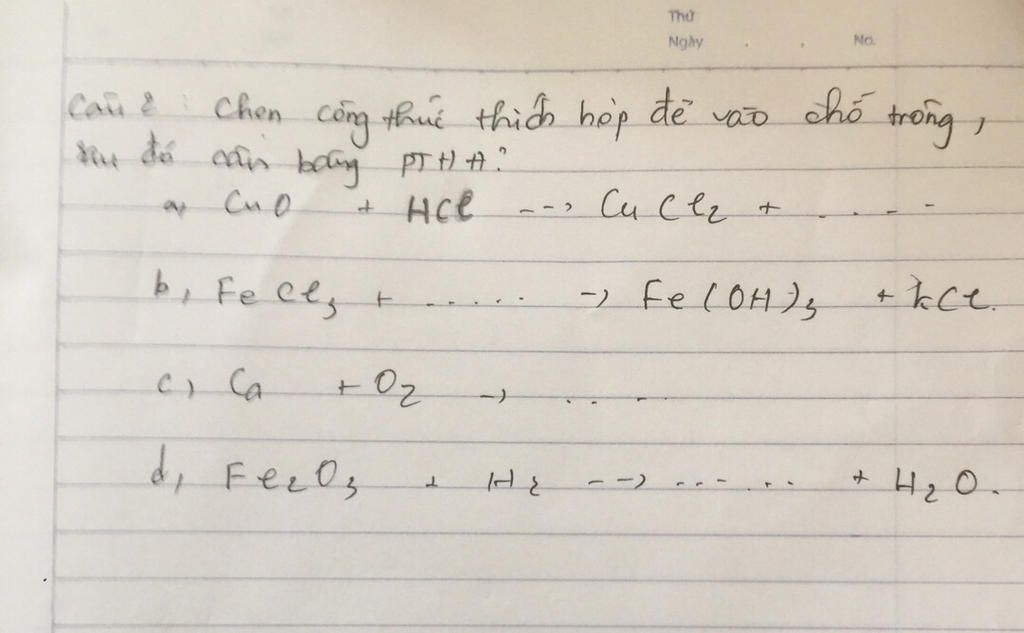 Thứ
Ngày . . No.
Câu 2 : Chọn công thức thích hợp để vào chỗ trống,
sau đó cân bằng PTHH?
a, CuO + HCl --> CuCl₂ + . . . - -
b, FeCl₃ + ...... -> Fe(OH)₃ + KCl.
c) Ca + O₂ -> . . . -
d, Fe₂O₃ + H₂ --> ------ + H₂O.